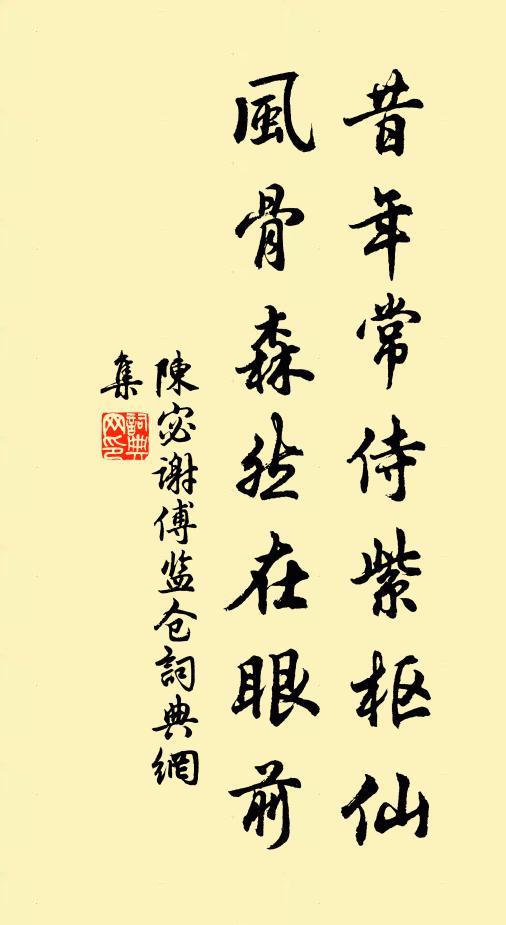 昔年常侍紫枢仙
風骨森然在眼前
陳宓谢傅监仓詞典網
集
詞典
网印